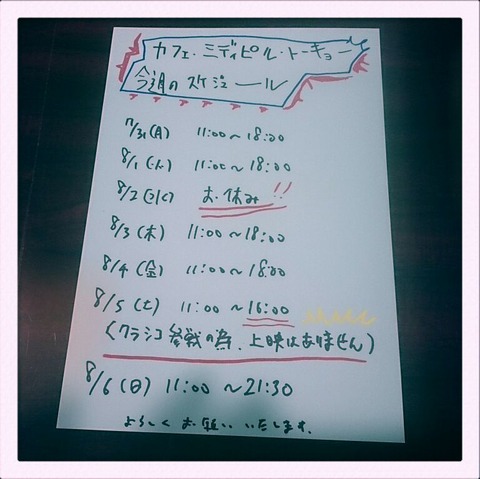 カフェ・ミディピル・トーキョー
今週のスケジュール
7/31(月) 11:00〜18:00
8/1(火) 11:00〜18:00
8/2(水) お休み!!
8/3(木) 11:00〜18:00
8/4(金) 11:00〜18:00
8/5(土) 11:00〜16:00
(クラシコ参戦の為、上映はありません)
8/6(日) 11:00〜21:30
よろしくお願いいたします。